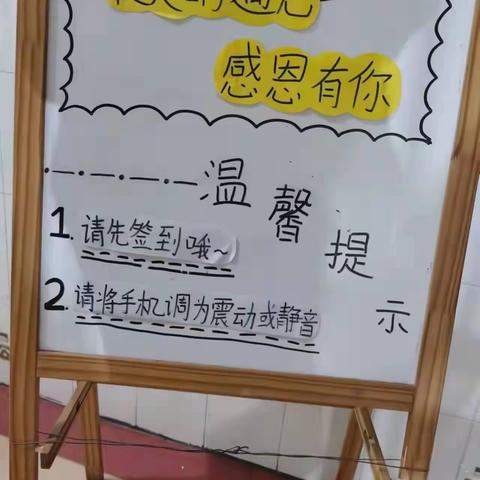 感恩有你
温馨提示
1. 请先签到哦~
2. 请将手机调为震动或静音